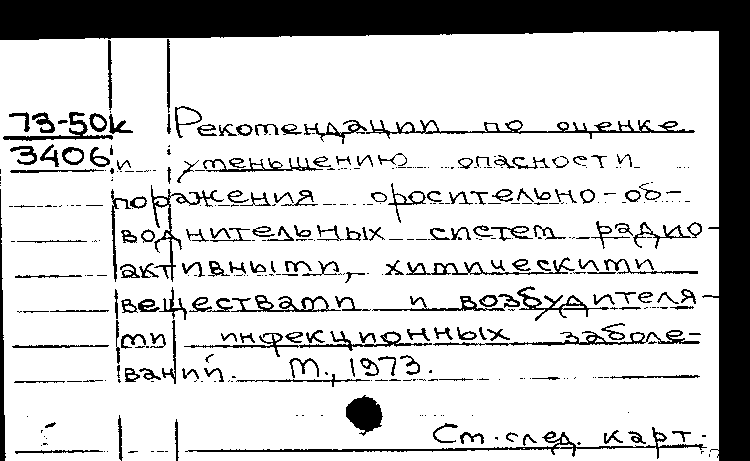 73-50к Рекомендации по оценке
3406 и уменьшению опасности
поражения оросительно-об-
воднительных систем радио-
активными, химическими
веществами и возбудителя-
ми инфекционных заболе-
ваний. М., 1973.
См. след. карт.